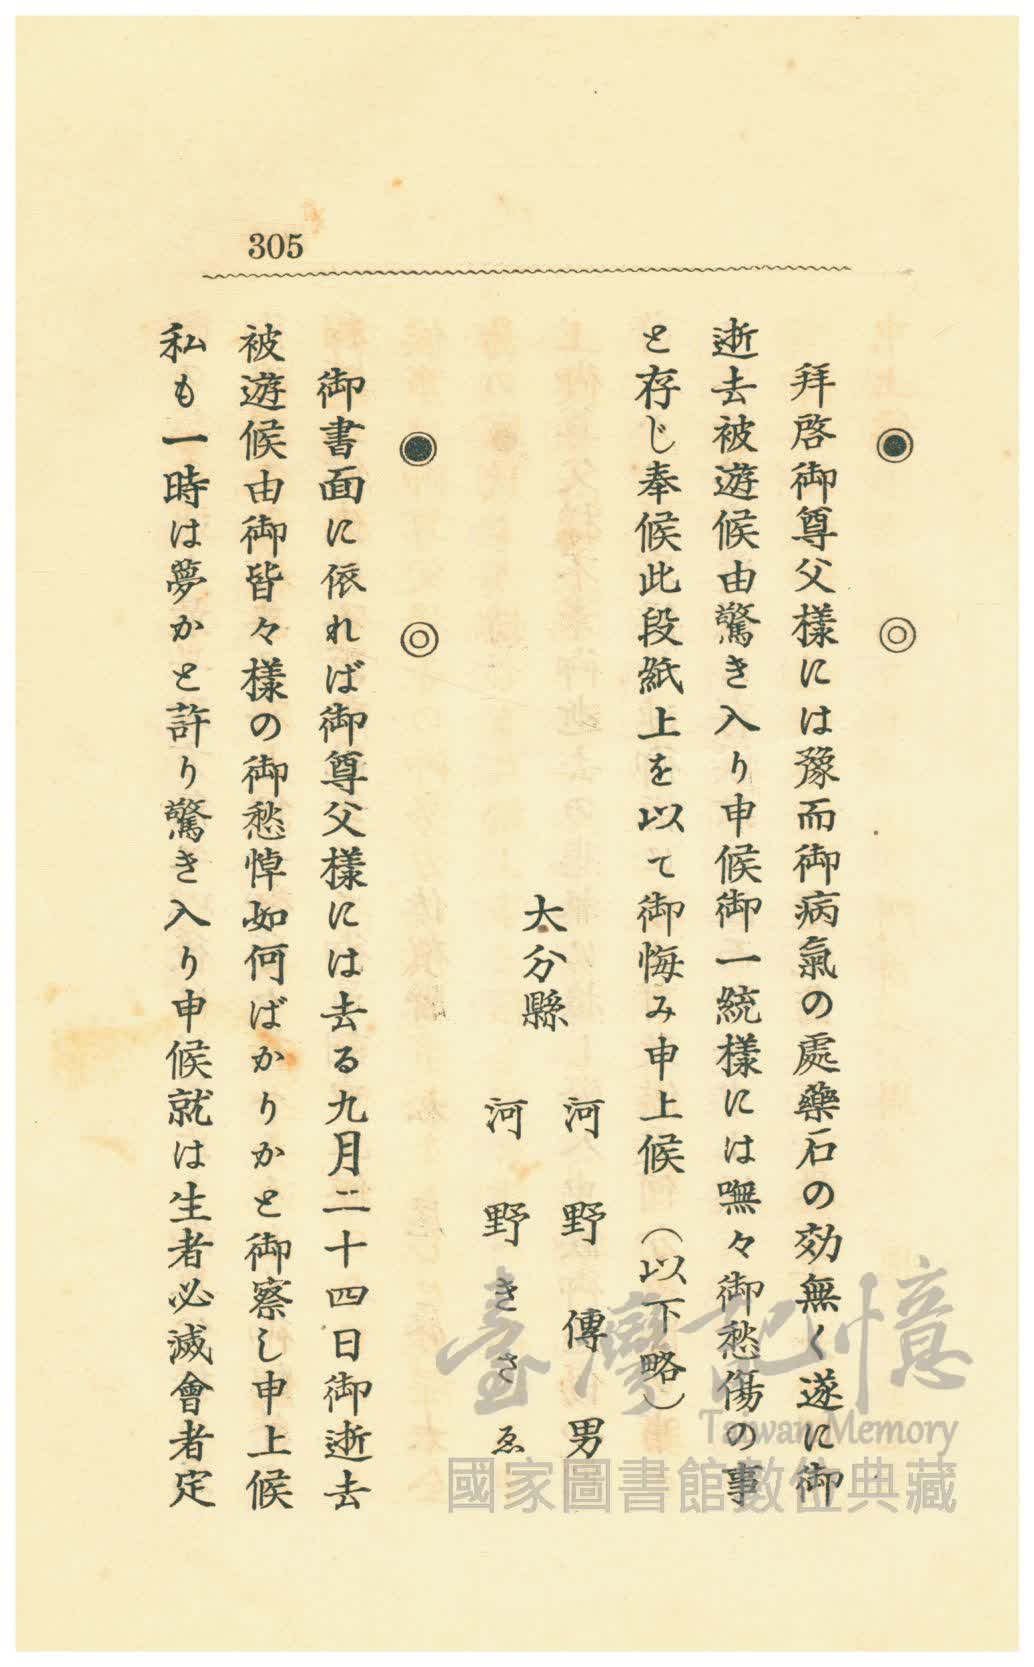 305
拜啓御尊父樣には豫而御病氣の處藥石の効無く遂に御
逝去被遊候由驚き入り申候御一統樣には嘸々御愁傷の事
と存じ奉候此段紙上を以て御悔み申上候　（以下略）
大分縣　河野傳男
河野きさゑ
御書面に依れば御尊父樣には去る九月二十四日御逝去
被遊候由御皆々樣の御愁悼如何ばかりかと御察し申上候
私も一時は夢かと許り驚き入り申候就は生者必滅會者定
臺灣記憶
Taiwan Memory
國家圖書館數位典藏